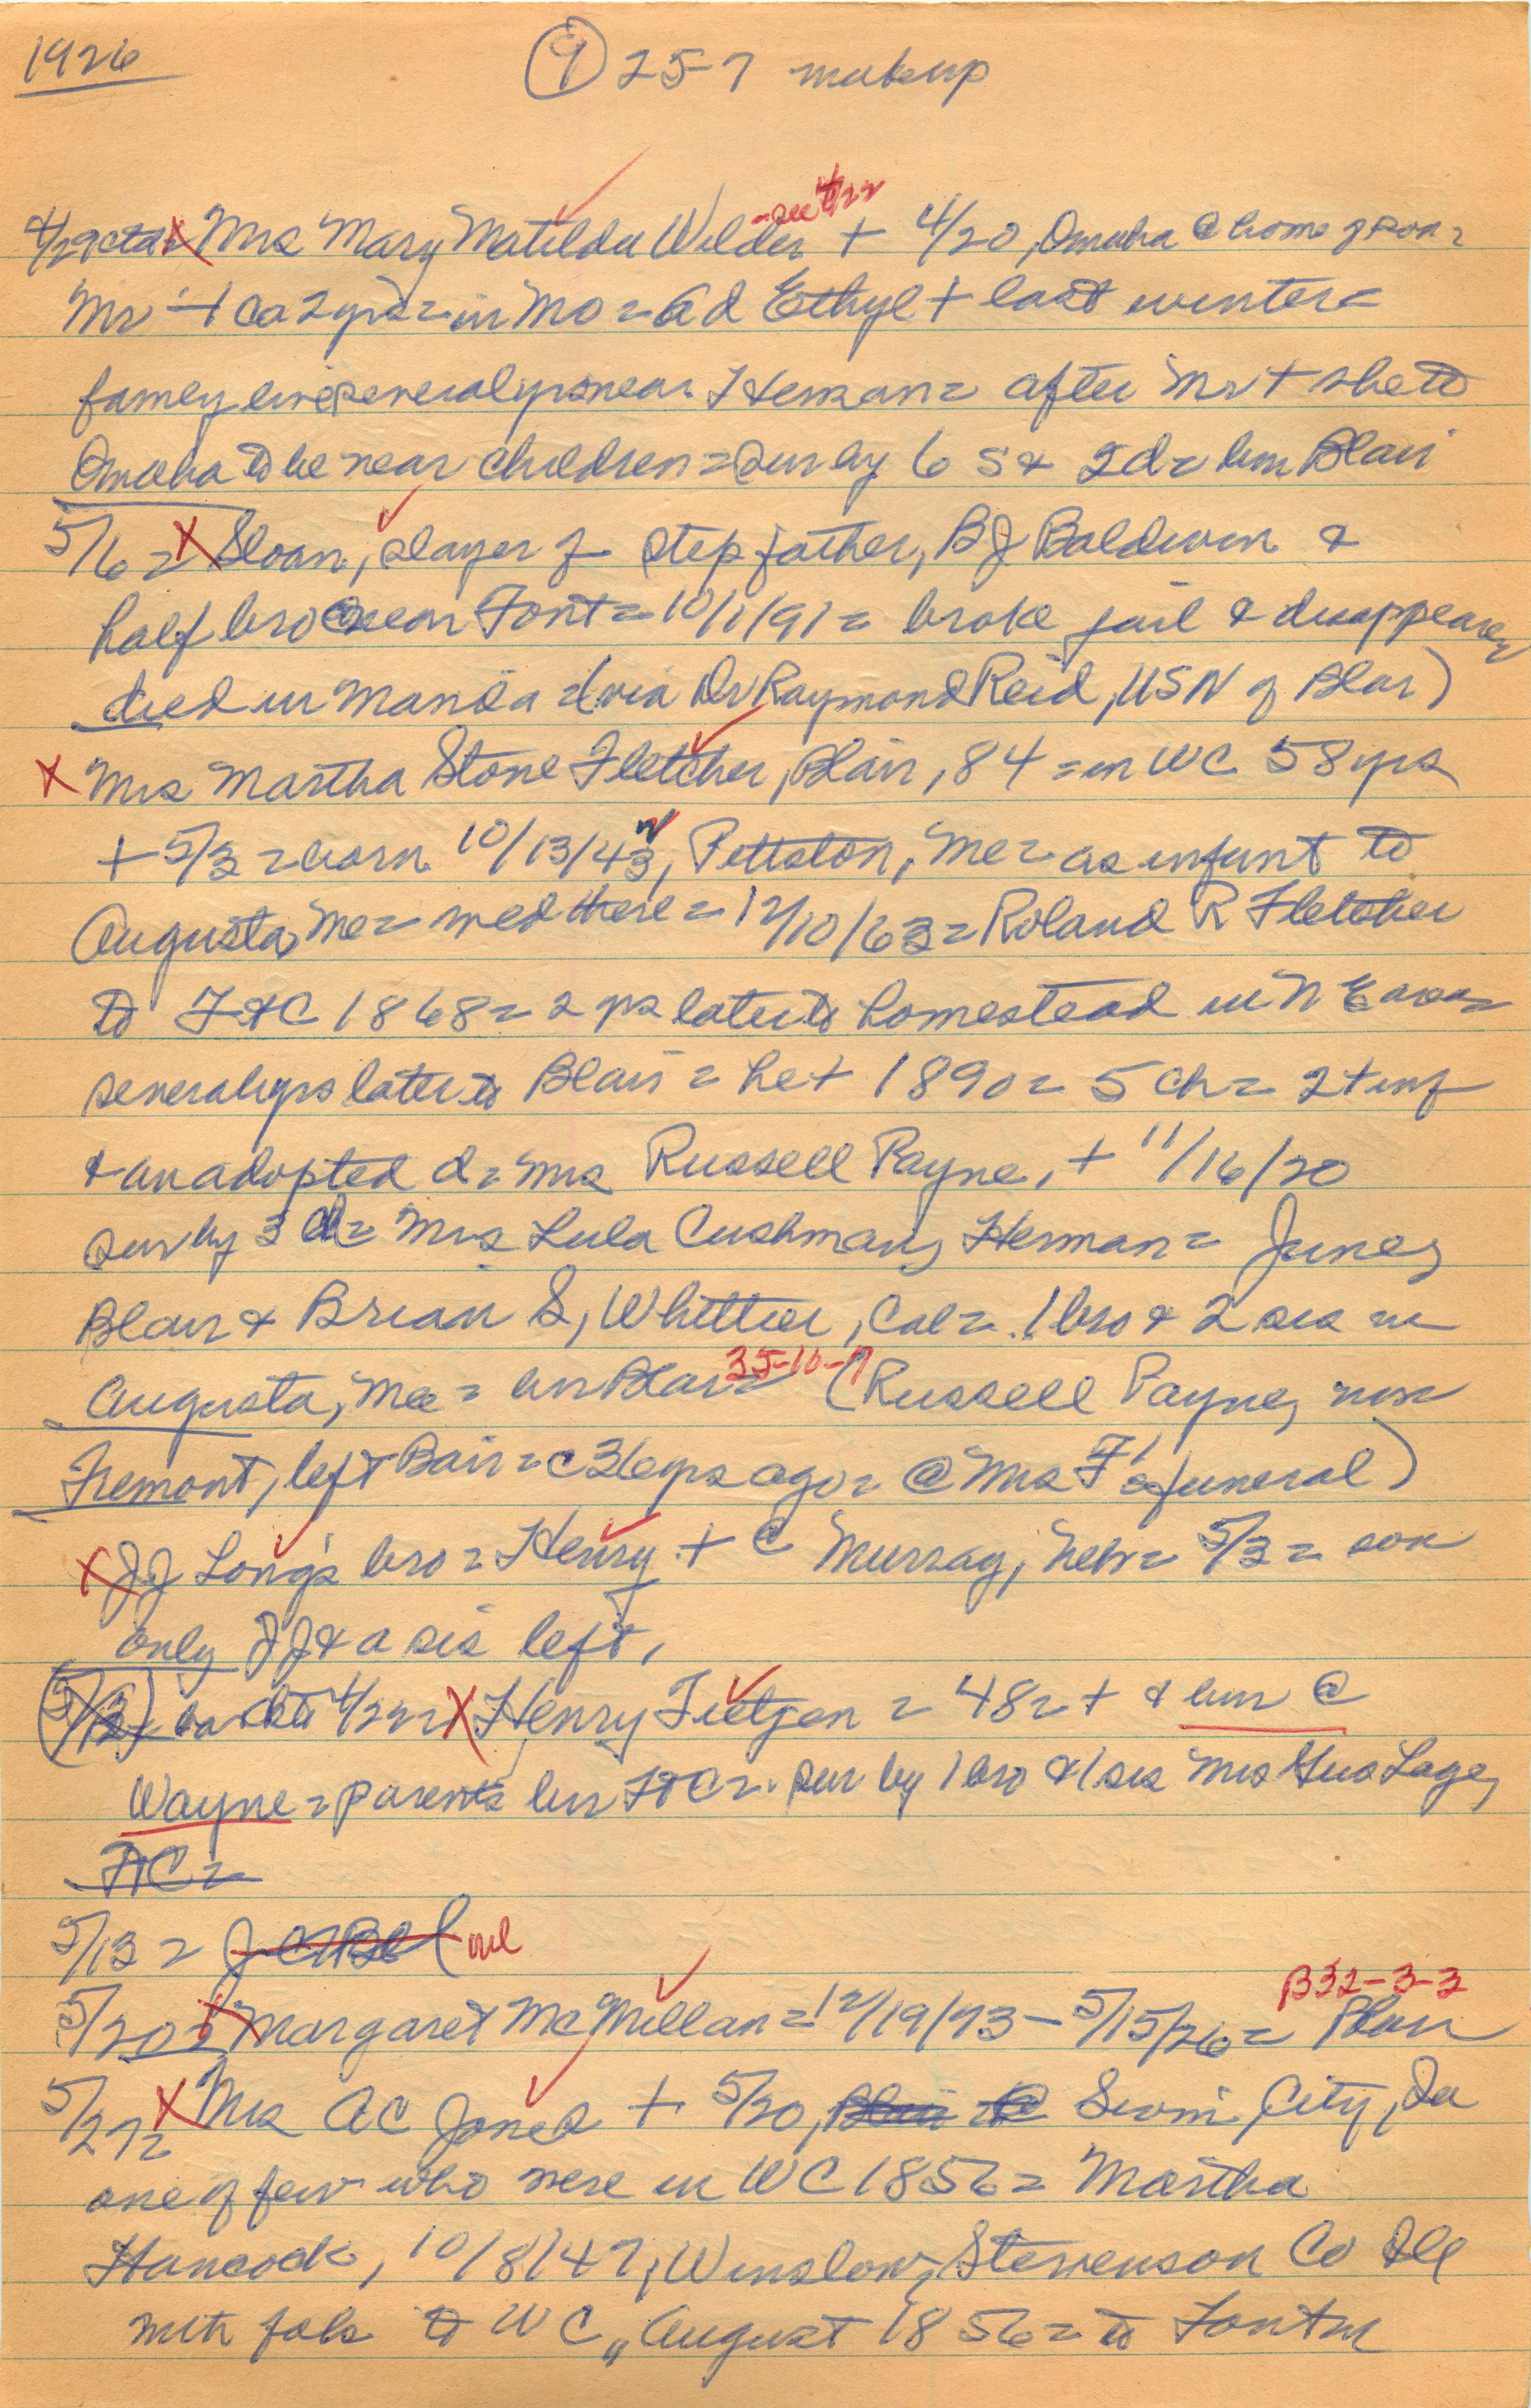 1926
(9) 25-7 makeup
-see 4/22
4/29 X Mrs Mary Matilda Wilder + 4/20, Omaha @ home of son =
Mr + ca 2 yrs = in Mo = ad Ethyl + last winter =
famey live several yrs near Herman = after Mr + she to
Omaha to be near children = sur by 6 s & 2 d = bur Blair
5/6 = X Sloan, slayer of step father, BJ Baldwin &
half bro near Font = 10/1/91 = broke jail & disappeared
died in Manila (via Dr Raymond Reid, USN of Blar)
X Mrs Martha Stone Fletcher, Blair, 84 = in WC 58 yrs
+ 5/3 = born 10/13/43, Pittston, Me = as infant to
Augusta, Me = wed there = 12/10/63 = Roland R Fletcher
to FtC 1868 = 2 yrs later to homestead in NE
several yrs later to Blair = he + 1890 = 5 ch = 2 + inf
& an adopted d = Mrs Russell Payne, + 11/16/20
sur by 3 = Mrs Lula Cushman, Herman = June,
Blair & Brian S, Whittier, Cal = 1 bro & 2 sis in
35-10-7
Augusta, Me = bur Blair = (Russell Payne, now
Fremont, left Bair = c 36 yrs ago = @ Mrs F's funeral)
X JJ Long's bro = Henry + @ Murray, Neb = 5/3 =
only JJ & a sis left,
(5/13) 4/22 = X Henry Tietjen = 48 = + & bur @
Wayne = parents bur FtC = sur by 1 bro & 1 sis Mrs Gus Lage,
FtC =
5/13 =
B32-3-3
5/20 = X Margaret McMillan = 12/19/73 - 5/15/26 = Blair
5/27 = X Mrs AC Jones + 5/20, Sioux City, Ia
one of few who were in WC 1856 = Martha
Hancock, 10/8/47, Winslow, Stevenson Co Ill
with fols to WC, August 1856 = to Fontnl